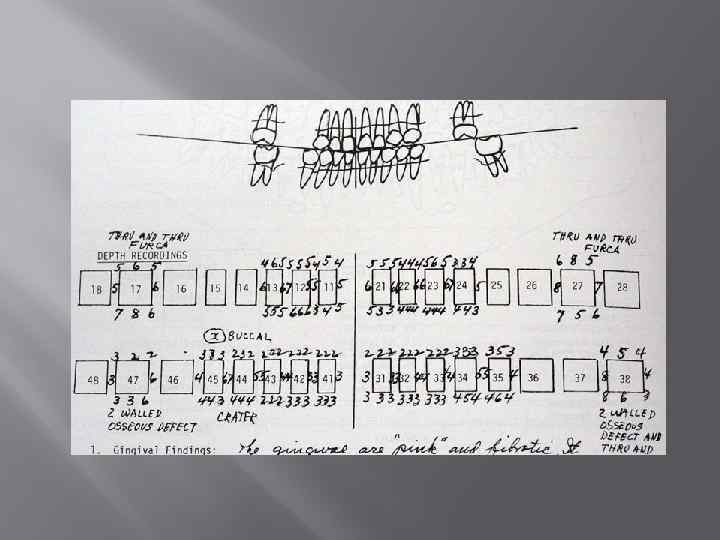 THRU AND THRU FURCA
THRU AND THRU FURCA
DEPTH RECORDINGS
5 6 5 4 6 5 5 5 5 4 5 4 5 5 5 4 4 4 5 6 5 3 3 4 6 8 5
18 5 17 6 16 15 14 13 12 11 21 22 23 24 25 26 8 27 7 28
7 8 6 5 5 5 6 6 6 3 4 5 5 3 3 4 4 4 4 4 4 4 4 3 7 5 6
(X) BUCCAL
3 2 2 3 3 3 2 3 2 2 2 2 2 2 2 2 2 2 2 2 2 2 2 2 2 2 2 3 3 3 3 5 3 4 5 4
48 3 47 6 46 4 45 44 43 42 41 3 31 32 33 34 35 4 36 37 8 38 4
3 3 6 4 4 3 4 4 4 2 2 2 3 3 3 3 3 3 3 3 3 3 3 3 3 3 3 4 5 4 4 6 4 8 6 3
2 WALLED
OSSEOUS DEFECT
CRATER
2 WALLED
OSSEOUS
DEFECT AND
THRU AND
1. Gingival Findings: The gingivae are "pink" and fibrotic. It